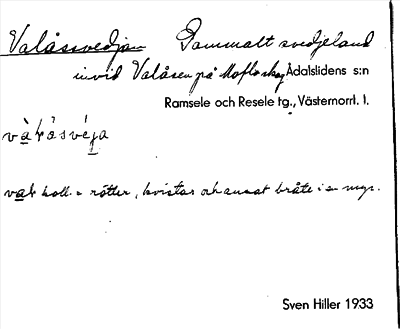 Valåssvedjan Gammalt svedjeland
invid Valåsen på Mofloskog Ådalslidens s:n
Ramsele och Resele tg., Västernorrl. l.
vàƚåsvéja
vaƚ koll. = rötter, kvistar och annat bråte i en myr.
Sven Hiller 1933